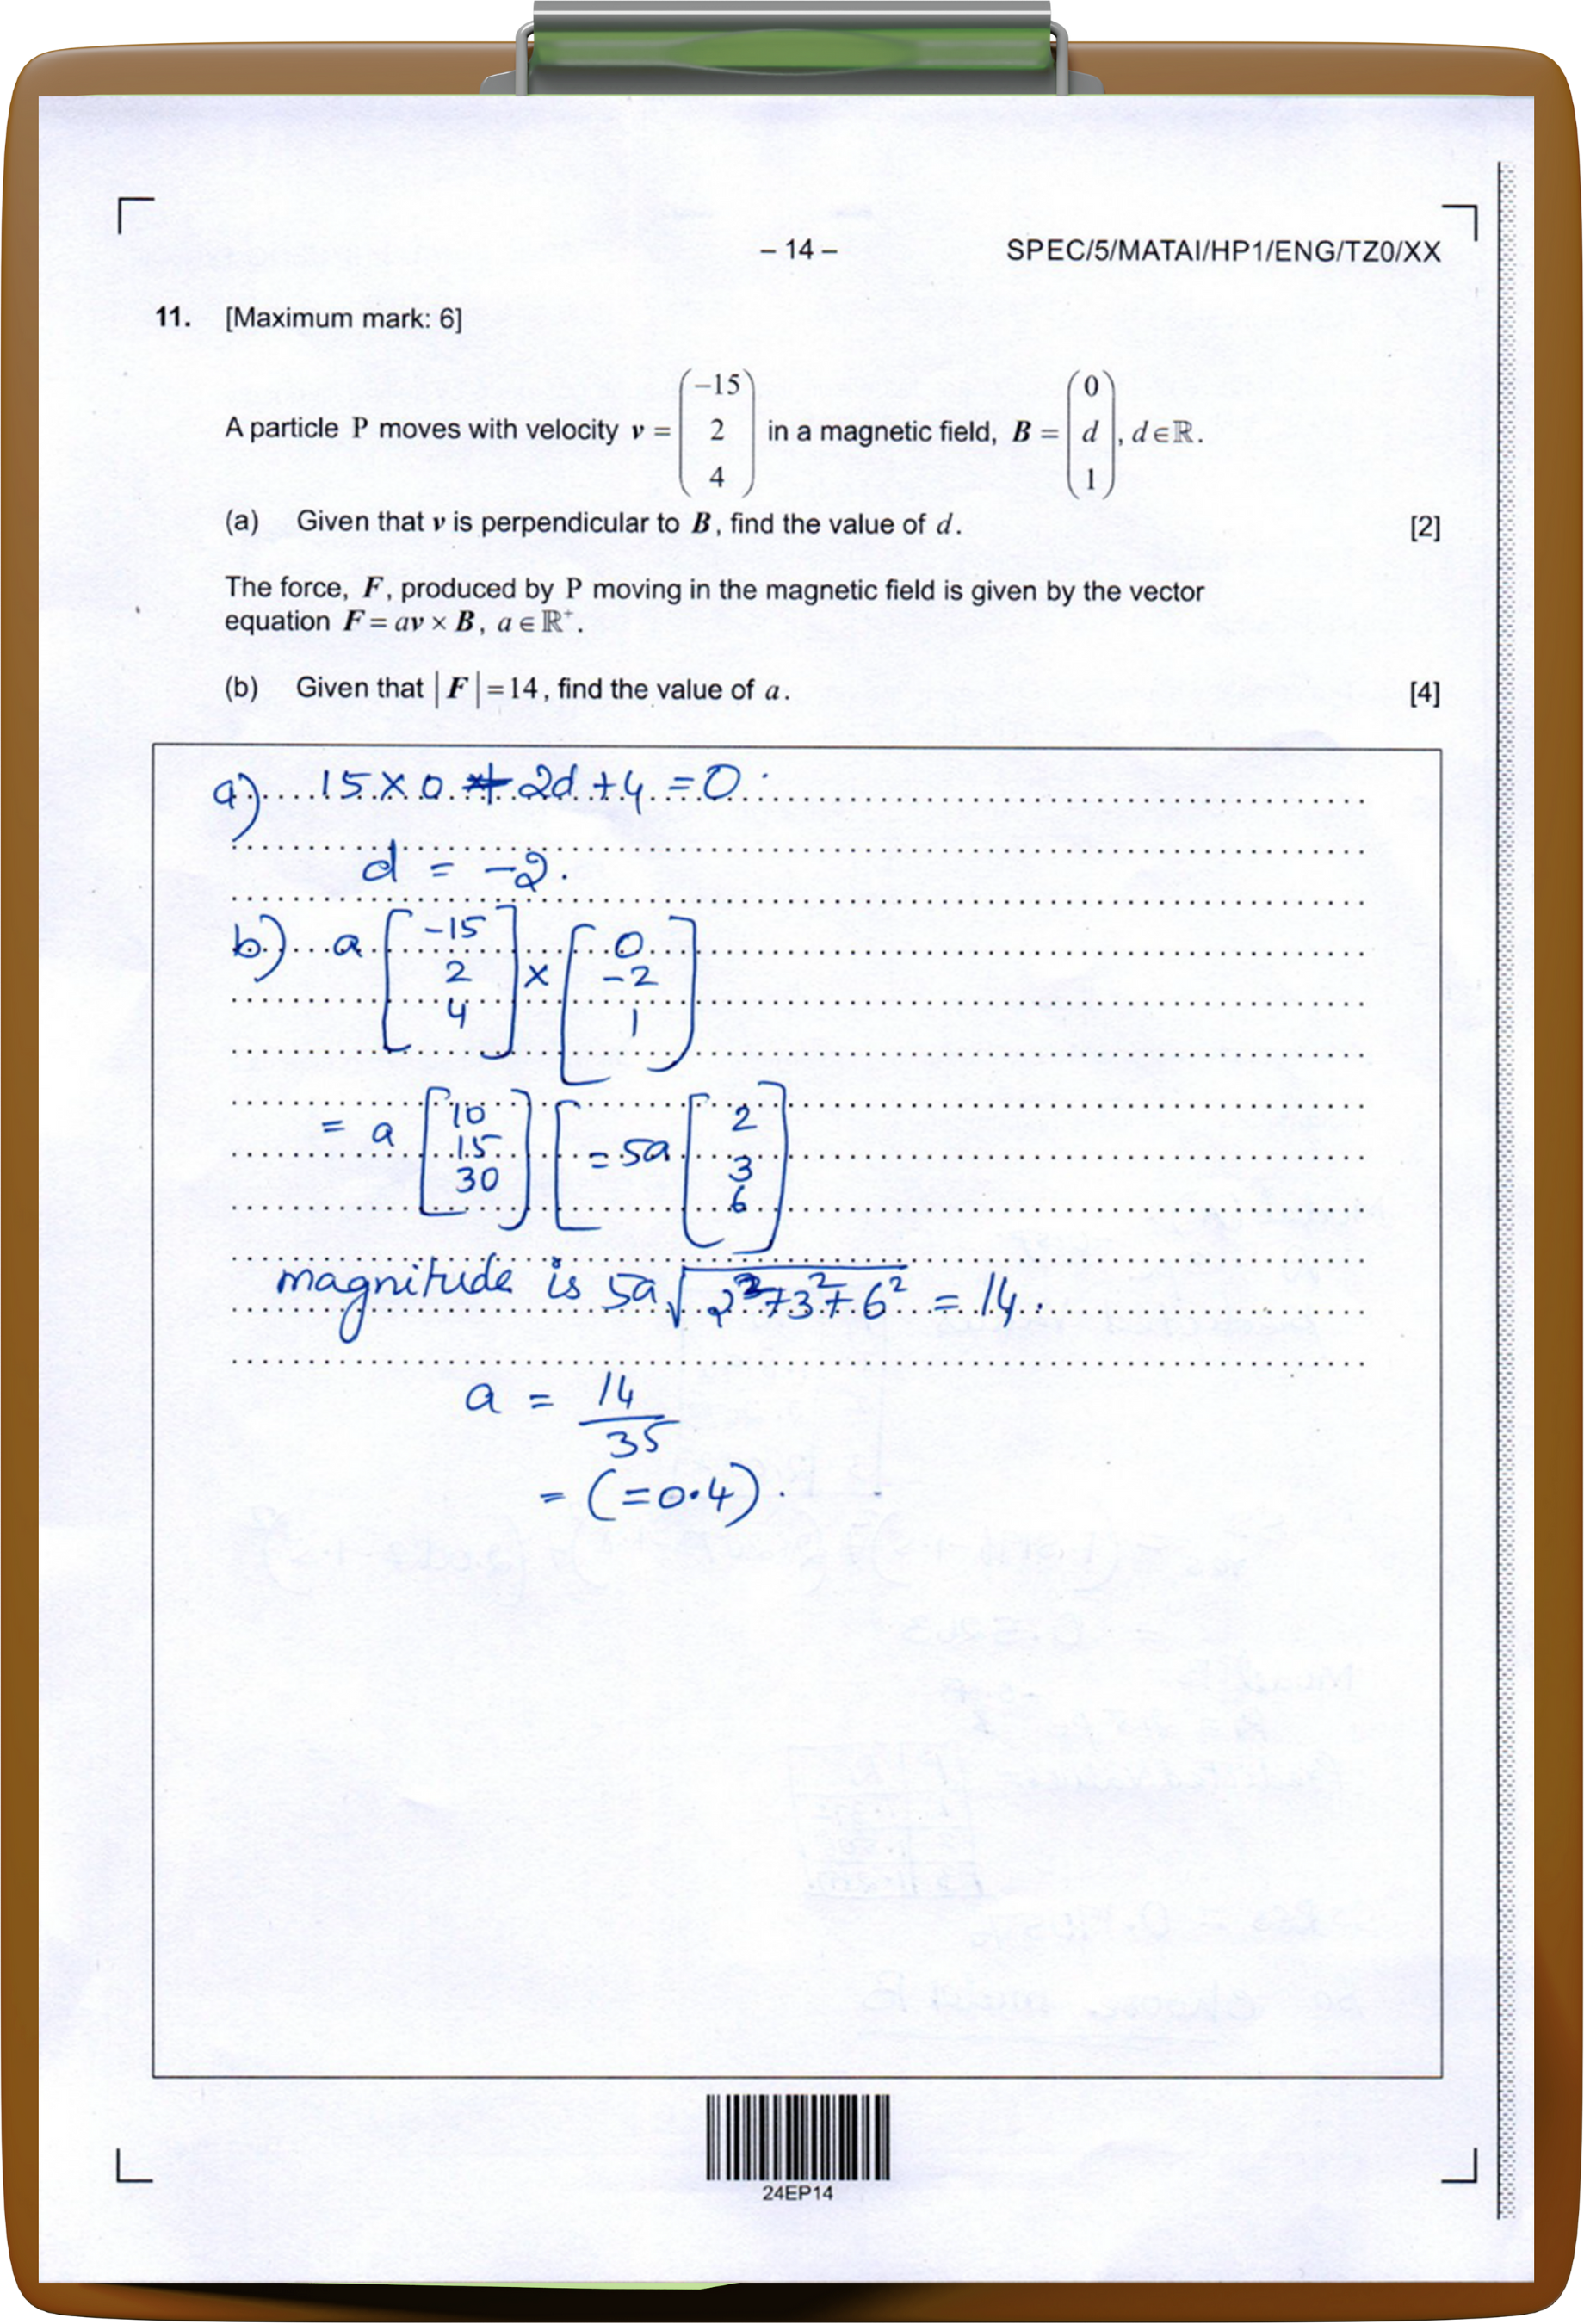 – 14 –
SPEC/5/MATAI/HP1/ENG/TZ0/XX
11. [Maximum mark: 6]
A particle P moves with velocity v = (−15 2 4) in a magnetic field, B = (0 d 1), d∈ℝ.
(a) Given that v is perpendicular to B, find the value of d. [2]
The force, F, produced by P moving in the magnetic field is given by the vector
equation F = av × B, a∈ℝ⁺.
(b) Given that |F| = 14, find the value of a. [4]
a) 15 × 0 + 2d + 4 = 0.
d = -2.
b) a [-15 2 4] × [0 -2 1]
= a [10 15 30] [ = 5a [2 3 6]
magnitude is 5a √2²+3²+6² = 14.
a = 14/35
= (=0.4).
24EP14